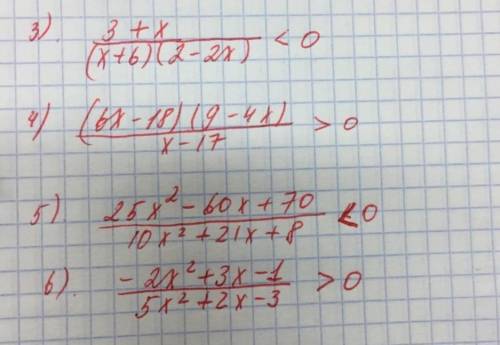 3). (3 + x)/((x+6)(2-2x)) < 0
4) ((6x-18)(9-4x))/(x-17) > 0
5) (25x² - 60x + 70)/(10x² + 21x + 8) < 0
6). (-2x² + 3x - 1)/(5x² + 2x - 3) > 0